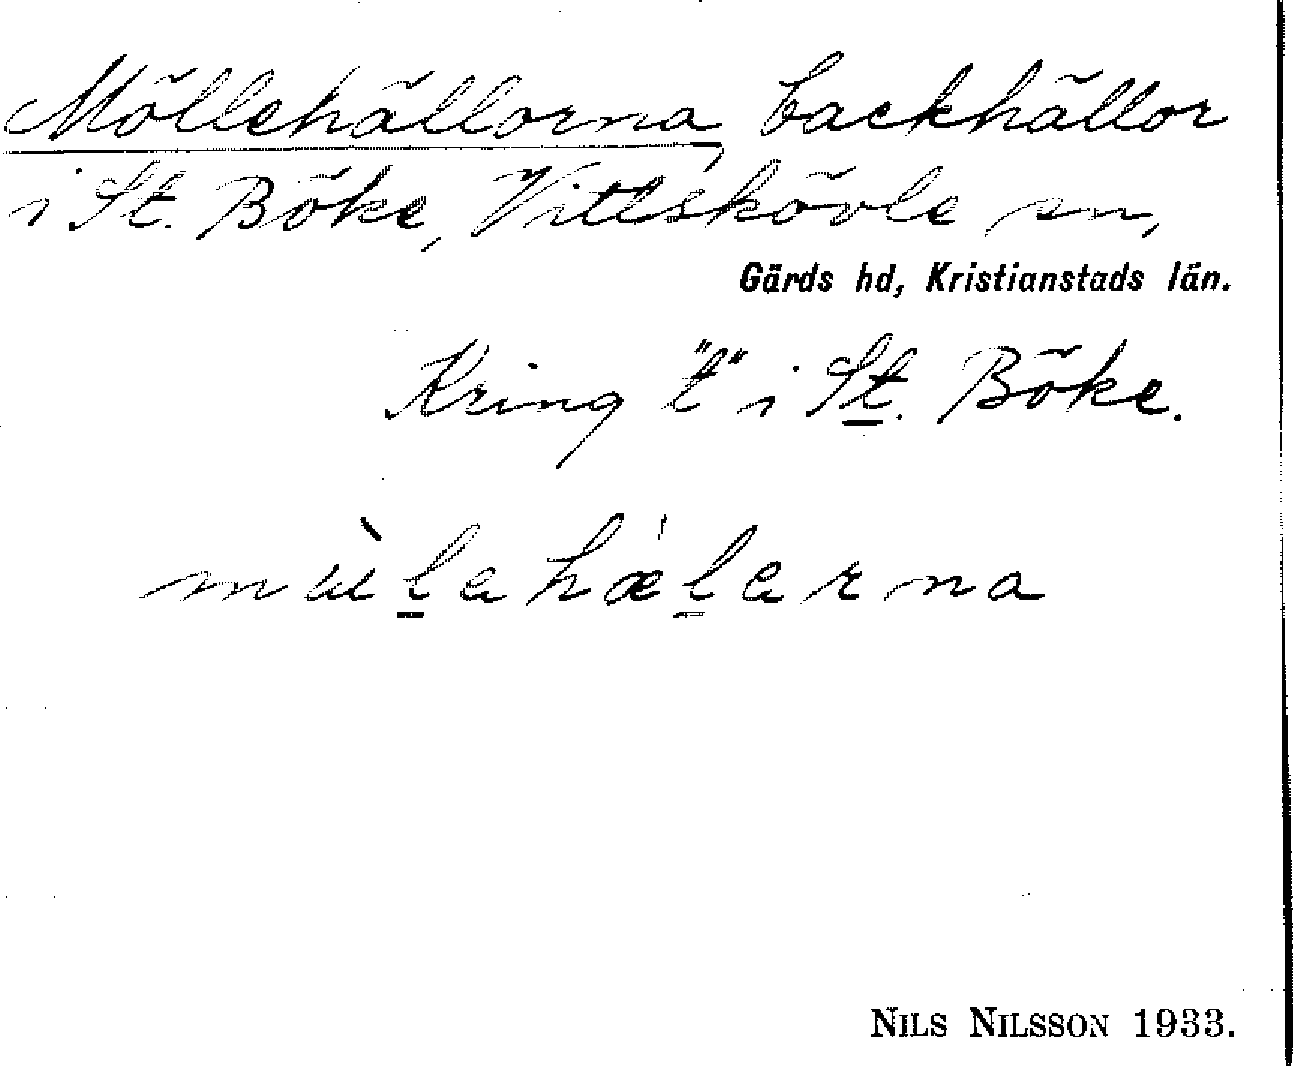 Möllehällorna, backhällor
i St. Böke, Vittskövle sn,
Gärds hd, Kristianstads län.
Kring "t" i St. Böke.
mɯ̀lahæ̀larna
NILS NILSSON 1933.